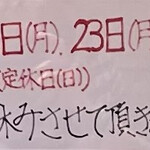 日(月)、23日(月
定休日(日))
休みさせて頂き